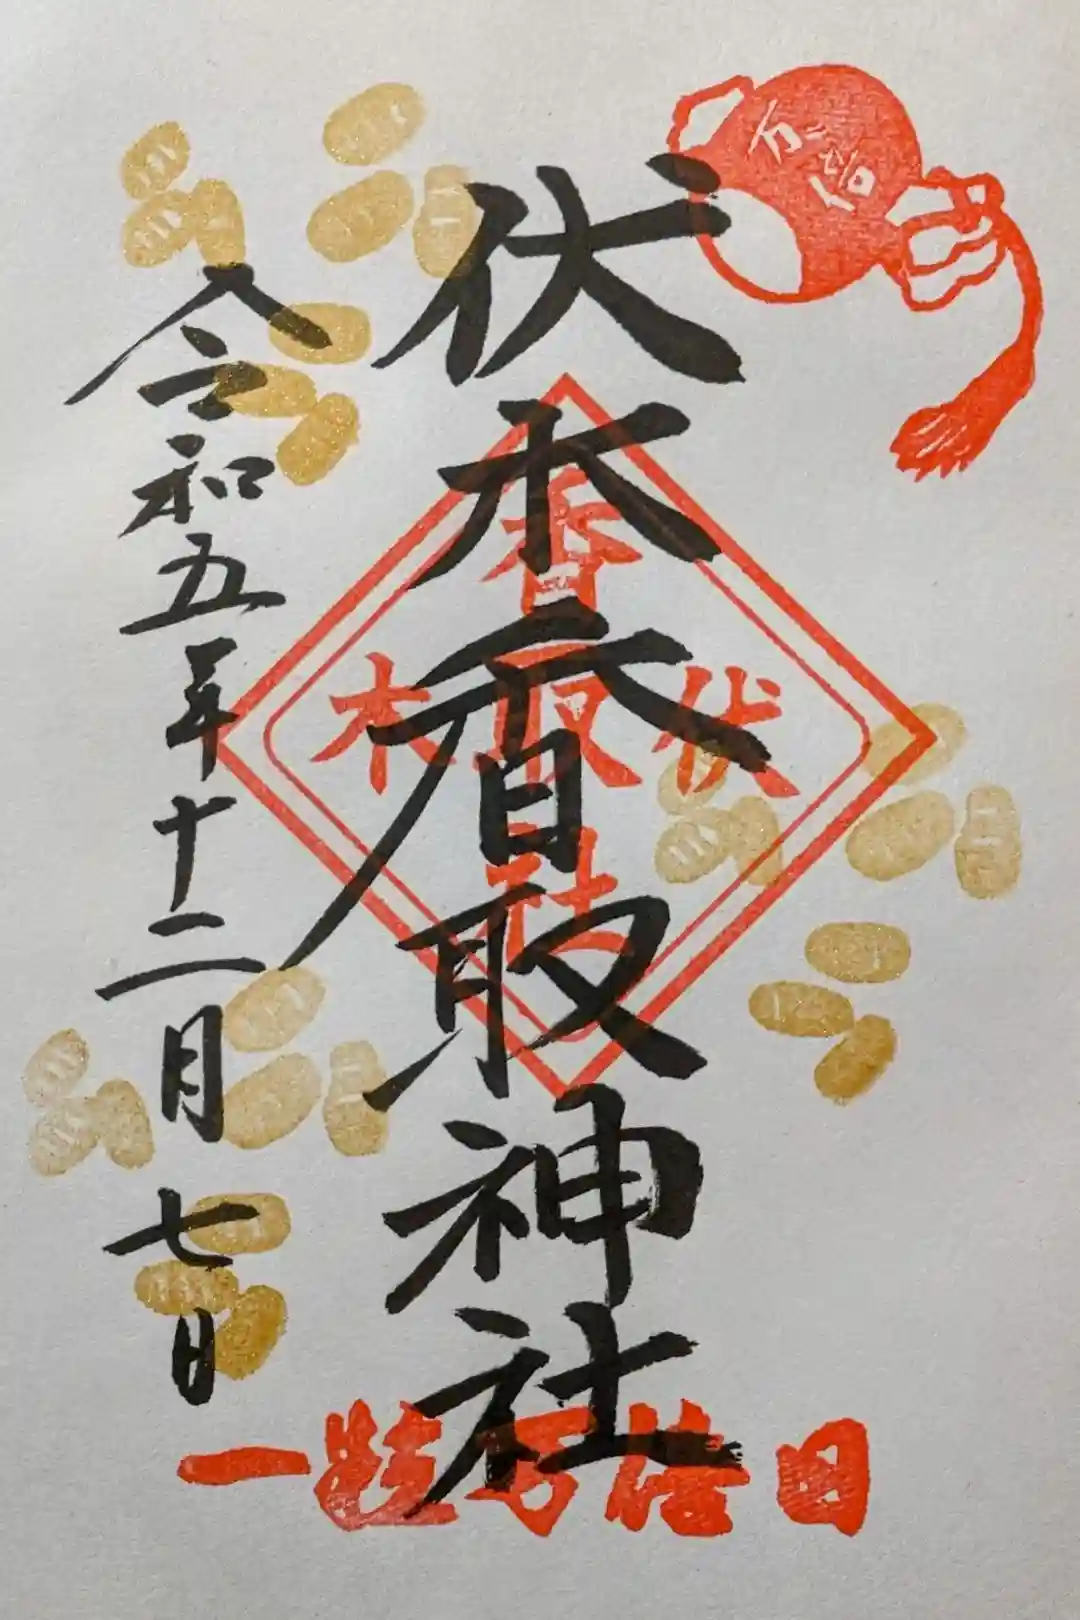 万倍
伏木香取神社
香
伏取木
社
令和五年十二月七日
一粒万倍日